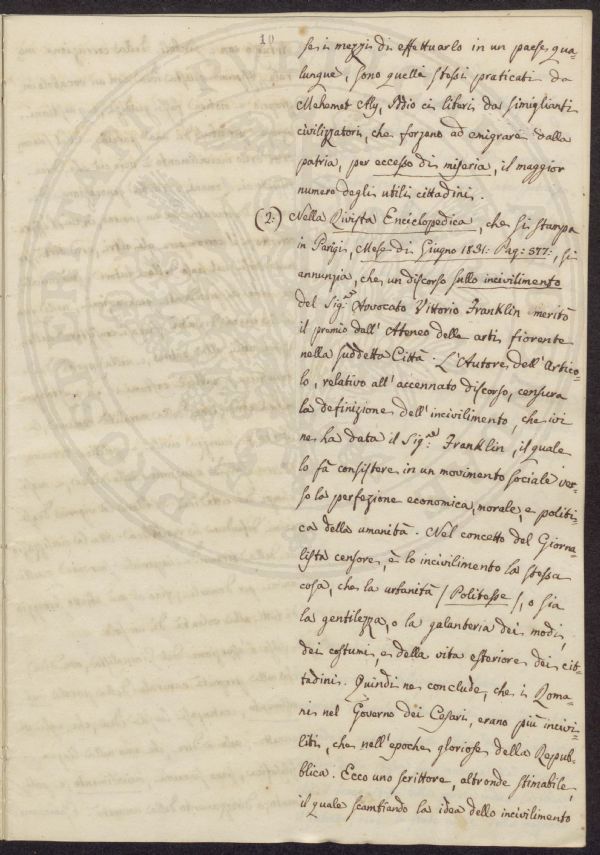 10
se i mezzi di effettuarlo in un paese qua=
lunque, sono quelli stessi praticati da
Mehemet Aly, Addio ci liberi da simiglianti
civilizzatori, che forzano ad emigrare dalla
patria, per eccesso di miseria, il maggior
numero degli utili cittadini.
(2:) Nella Rivista Enciclopedica, che si stampa
in Parigi, Mese di Giugno 1831: Pag: 577:, si
annunzia, che un discorso sullo incivilimento
del Sig:re Avvocato Vittorio Franklin meritò
il premio dall' Ateneo delle arti fiorente
nella suddetta Città. L'Autore dell'Artico=
lo, relativo all'accennato discorso, censura
la definizione dell'incivilimento, che ivi
ne ha data il Sig:re Franklin, il quale
lo fà consistere in un movimento sociale ver=
so la perfezione economica, morale, e politi=
ca della umanità. Nel concetto del Giorna=
lista censore, è lo incivilimento la stessa
cosa, che la urbanità / Politesse /, o sia
la gentilezza, o la galanteria dei modi,
dei costumi, e della vita esteriore dei cit=
tadini. Quindi ne conclude, che i Roma=
ni nel Governo dei Cesari, erano più incivi=
liti, che nell'epoche gloriose della Repub=
blica. Ecco uno scrittore, altronde stimabile,
il quale scambiando la idea dello incivilimento